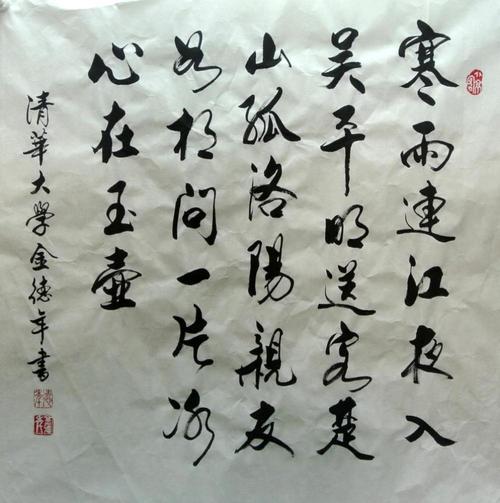 寒雨連江夜入
吴平明送客楚
山孤洛陽親友
如相問一片冰
心在玉壺
清華大学金德年書